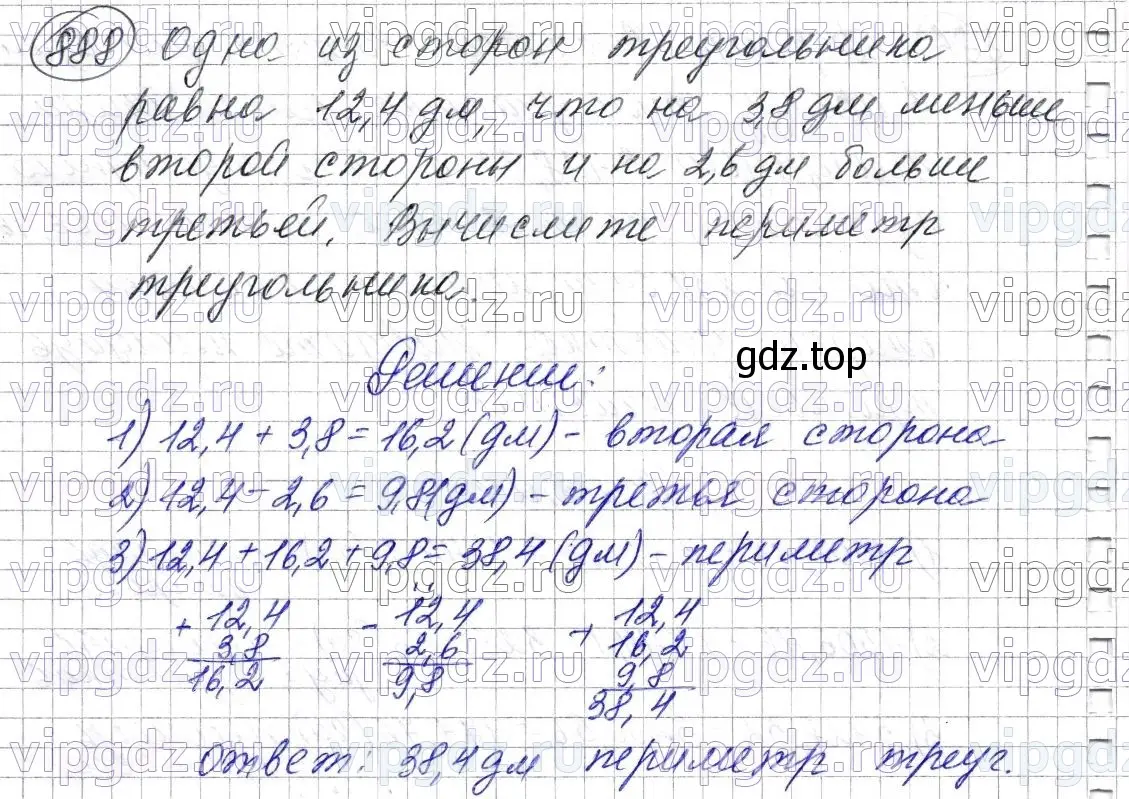 888 Одна из сторон треугольника
равна 12,4 дм, что на 3,8 дм меньше
второй стороны и на 2,6 дм больше
третьей. Вычислите периметр
треугольника.
gdz.top
Решение:
1) 12,4 + 3,8 = 16,2 (дм) - вторая сторона
2) 12,4 - 2,6 = 9,8 (дм) - третья сторона
3) 12,4 + 16,2 + 9,8 = 38,4 (дм) - периметр
+ 12,4 - 12,4 + 12,4
3,8 2,6 16,2
16,2 9,8 9,8
38,4
ответ: 38,4 дм периметр треуг.
vipgdz.ru